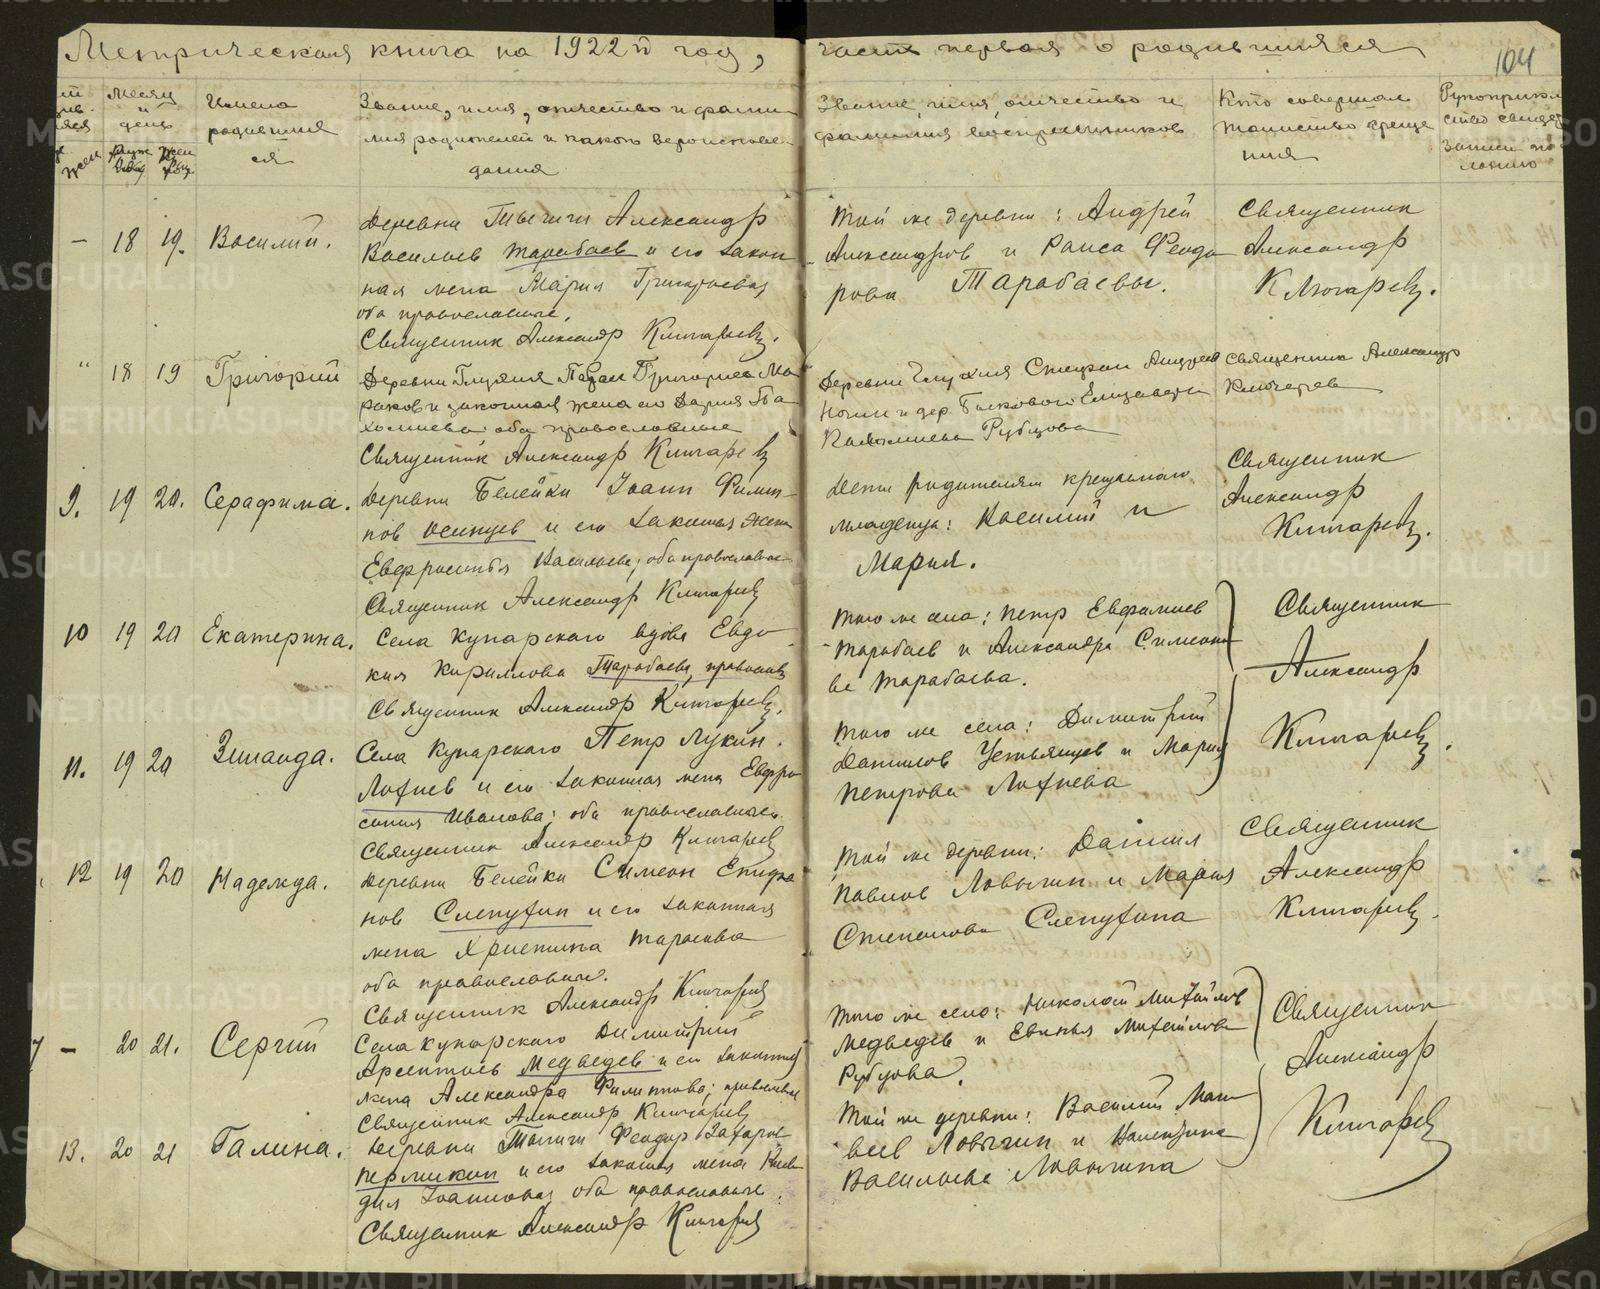 Метрическая книга на 1922й год, часть первая о родившихся
104
Месяц и день
Имена родившихся
Звание, имя, отчество и фамилия родителей и какого вероисповедания
Звание имя отчество и фамилия восприемников
Кто совершал таинство крещения
жен
– 18 19. Василий.
Деревни Александр
Васильев Тарабаев и его законная
жена Мария Григорьева
оба православные.
Священник Александр Ключарев.
Той же деревни: Андрей
Александров и Раиса Феодорова
Тарабаевы.
Священник
Александр
Ключарев.
" 18 19 Григорий
Деревни Глухия Павел Григорьев
и законная жена его Дария
оба православные
Священник Александр Ключарев
Деревни Глухия Стефан
и дер. Быкового Елизавета
Рубцова
Священник Александр
Ключарев
9. 19 20. Серафима.
Деревни Белейки Иоанн Филиппов
Осинцев и его законная жена
Евфросиния Васильева, оба православные
Священник Александр Ключарев
Дети родителей крещаемого
младенца: Василий и
Мария.
Священник
Александр
Ключарев.
10 19 20 Екатерина.
Села Купарского вдова Евдокия
Кириллова Тарабаева, православ.
Священник Александр Ключарев.
Того же села: Петр Евфимиев
Тарабаев и Александра Симеонова
Тарабаева.
Священник
Александр
Ключарев.
11. 19 20 Зинаида.
Села Купарского Петр Лукин.
Лохнев и его законная жена Евфросиния
Иванова; оба православные.
Священник Александр Ключарев
Того же села: Димитрий
Данилов Устьянцев и Мария
Петрова Лохнева
12 19 20 Надежда.
Деревни Белейки Симеон
Слепухин и его законная
жена Христина Тарасова
оба православные.
Священник Александр Ключарев
Той же деревни: Даниил
Павлов Ловыгин и Мария
Степанова Слепухина
Священник
Александр
Ключарев.
7 – 20 21. Сергий
Села Купарского Димитрий
Арсентиев Медведев и его законная
жена Александра Филиппова; православные
Священник Александр Ключарев
Того же села: Николай Михайлов
Медведев и Евгения Михайлова
Рубцова.
Священник
Александр
Ключарев
13. 20 21 Галина.
Деревни Феодор Захаров
Пермикин и его законная жена Клавдия
Иоаннова, оба православные.
Священник Александр Ключарев
Той же деревни: Василий
Ловыгин и Валентина
Васильева Ловыгина
METRIKI.GASO-URAL.RU